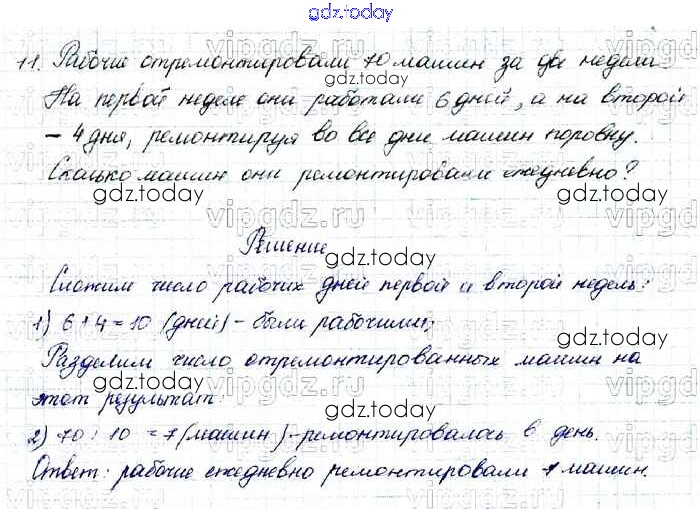 gdz.today
11. Рабочие отремонтировали 70 машин за две недели.
На первой неделе они работали 6 дней, а на второй
- 4 дня, ремонтируя во все дни машин поровну.
Сколько машин они ремонтировали ежедневно?
Решение
Сложим число рабочих дней первой и второй недель:
1) 6+4=10 (дней) - были рабочими;
Разделим число отремонтированных машин на
этот результат:
2) 70:10=7 (машин) - ремонтировалось в день.
Ответ: рабочие ежедневно ремонтировали 7 машин.